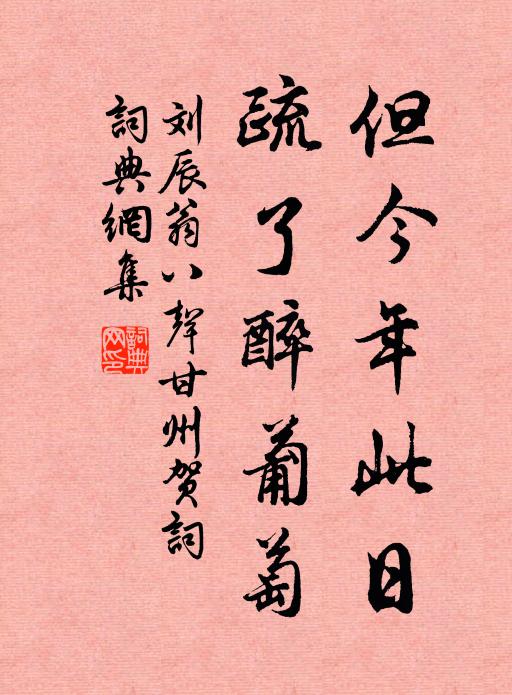 但今年此日
疏了醉葡萄
刘辰翁八聲甘州賀詞
詞典網集
詞典網印